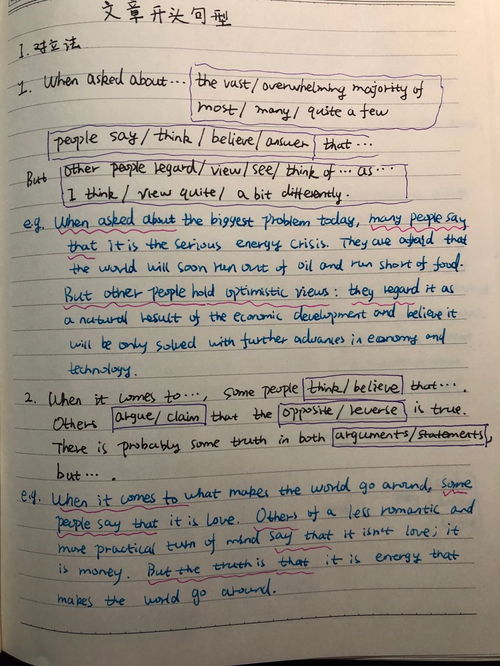 文章开头句型
I. 对立法
1. When asked about… the vast/overwhelming majority of
most/many/quite a few
people say/think/believe/answer that…
But other people regard/view/see/think of … as…
I think/view quite/a bit differently.
e.g. When asked about the biggest problem today, many people say
that it is the serious energy crisis. They are afraid that
the world will soon run out of oil and run short of food.
But other people hold optimistic views: they regard it as
a natural result of the economic development and believe it
will be only solved with further advances in economy and
technology.
2. When it comes to…, some people think/believe that….
Others argue/claim that the opposite/reverse is true.
There is probably some truth in both arguments/statements,
but….
e.g. When it comes to what makes the world go around, some
people say that it is love. Others of a less romantic and
more practical turn of mind say that it isn't love; it
is money. But the truth is that it is energy that
makes the world go around.